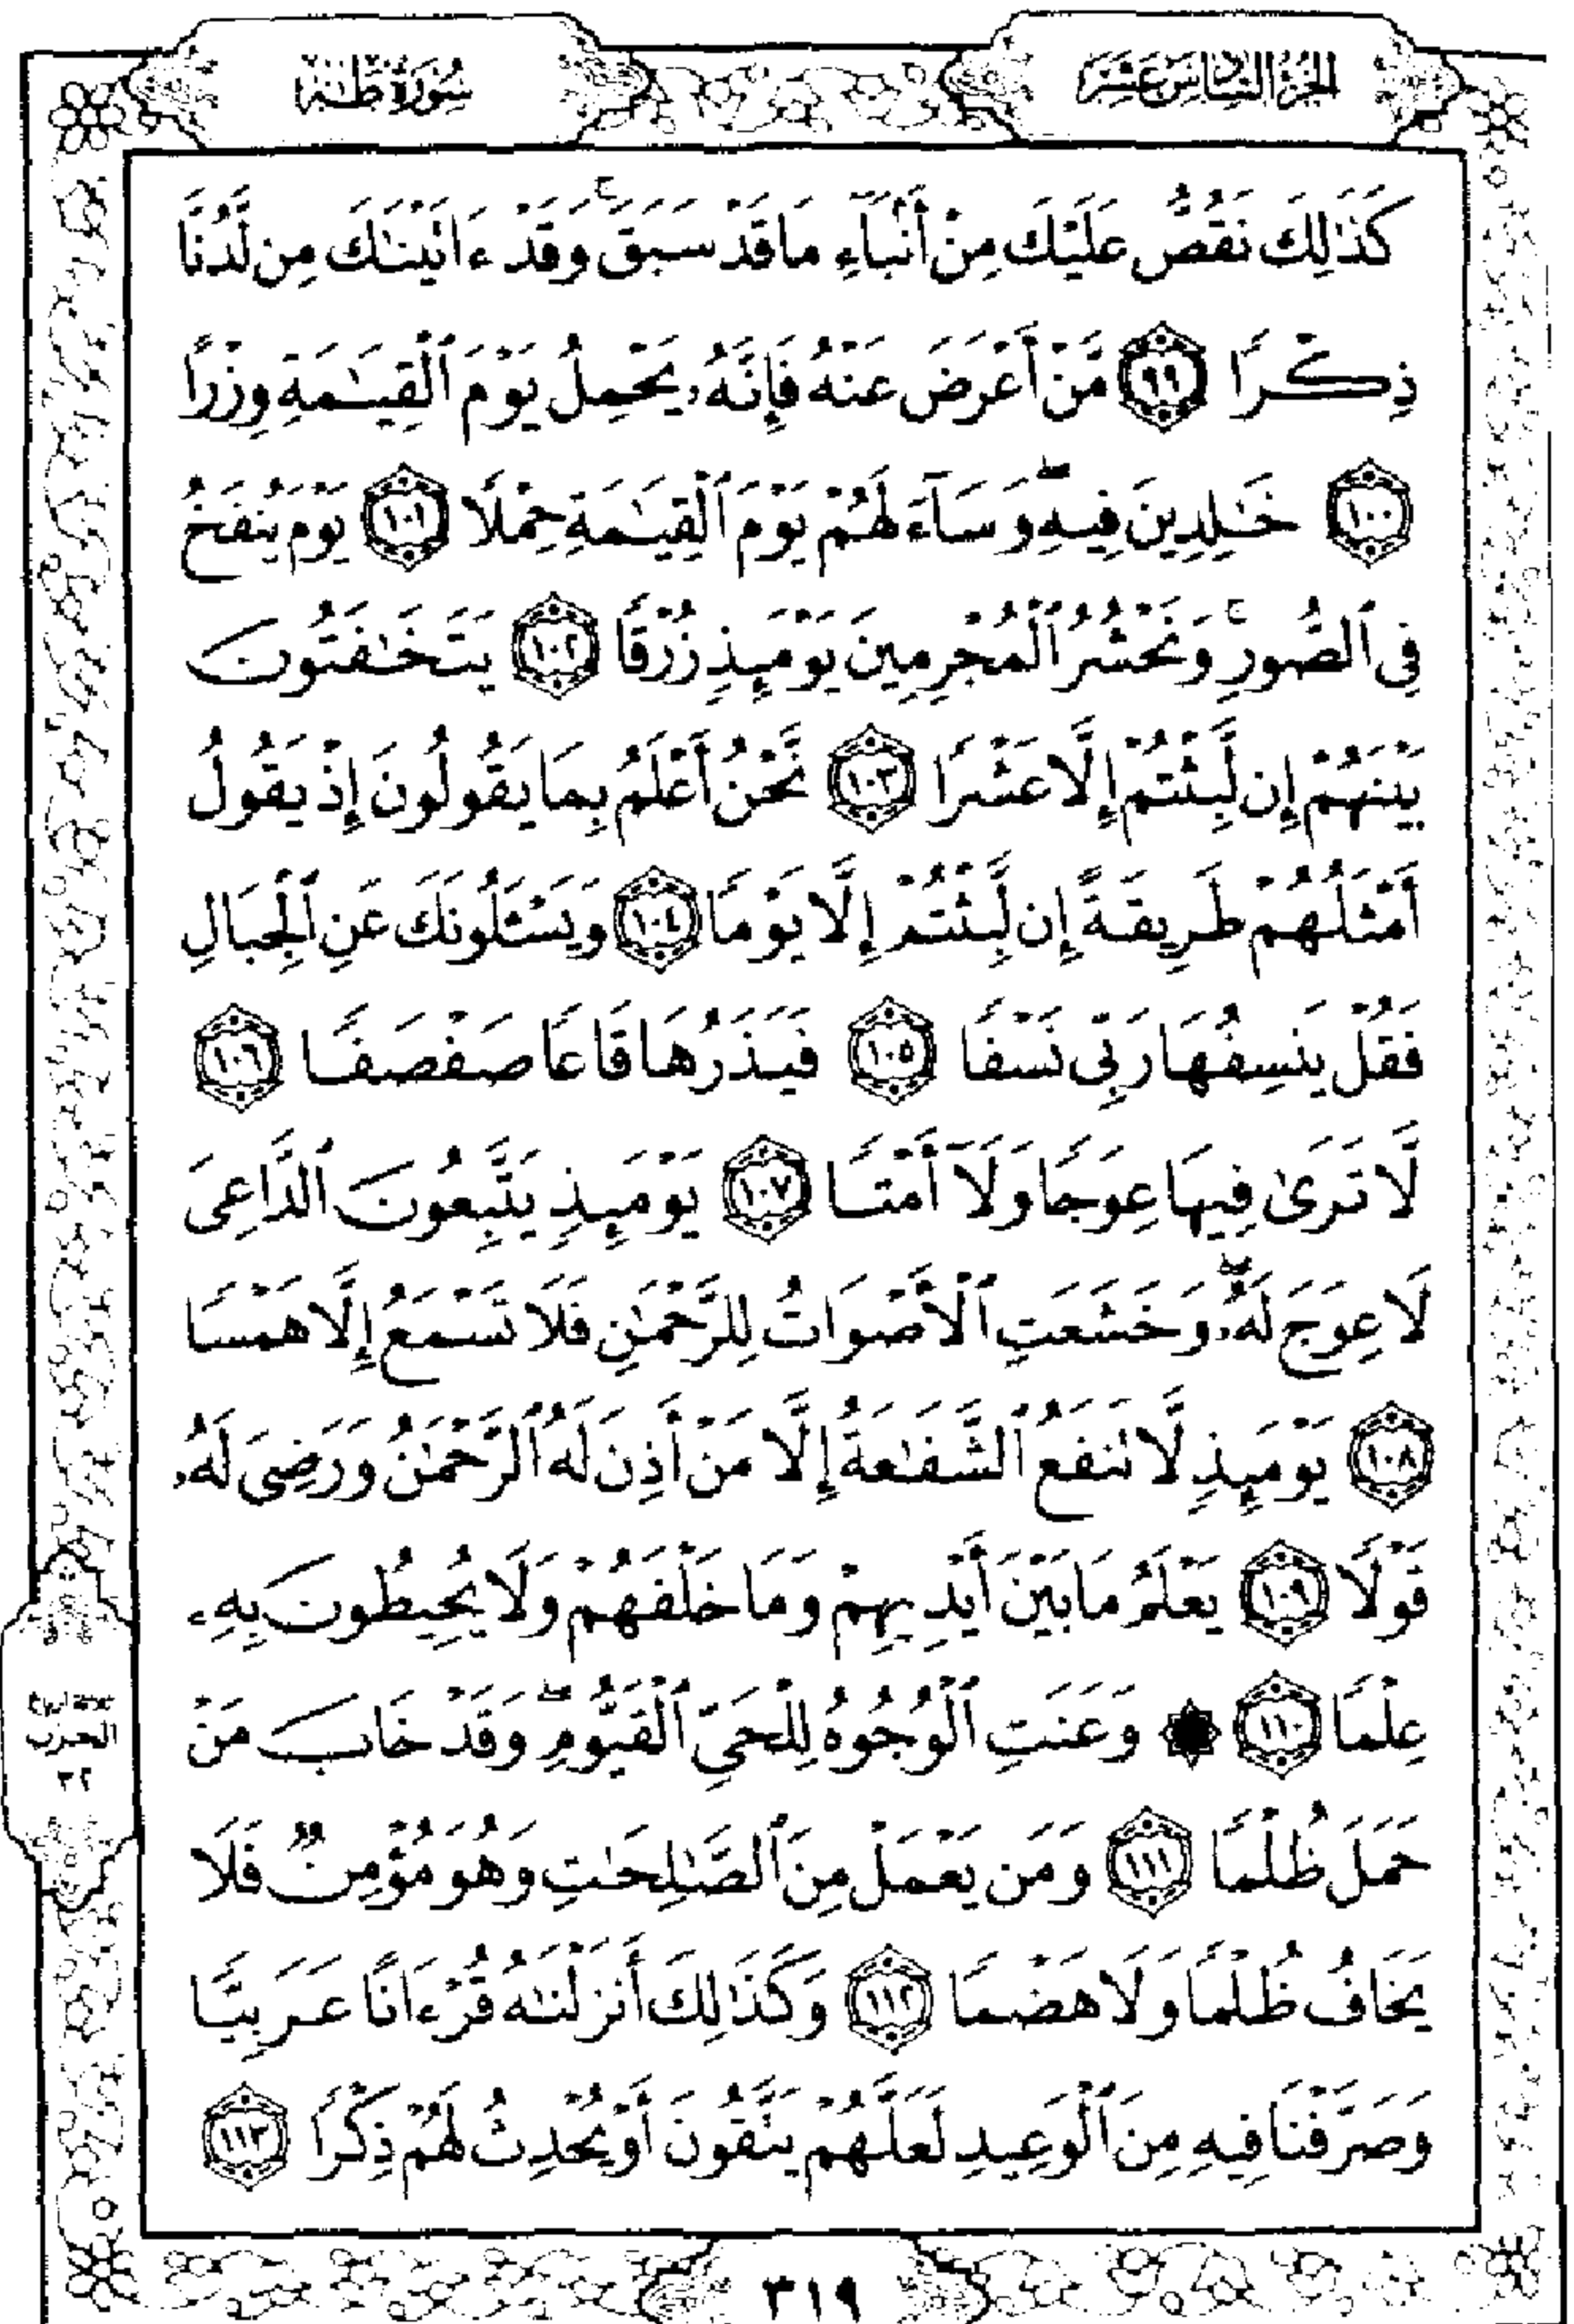 الجزء السادس عشر
سورة طه
كَذَٰلِكَ نَقُصُّ عَلَيْكَ مِنْ أَنۢبَآءِ مَا قَدْ سَبَقَ ۚ وَقَدْ ءَاتَيْنَـٰكَ مِن لَّدُنَّا
ذِكْرًا ﴿٩٩﴾ مَّنْ أَعْرَضَ عَنْهُ فَإِنَّهُۥ يَحْمِلُ يَوْمَ ٱلْقِيَـٰمَةِ وِزْرًا
﴿١٠٠﴾ خَـٰلِدِينَ فِيهِ ۖ وَسَآءَ لَهُمْ يَوْمَ ٱلْقِيَـٰمَةِ حِمْلًا ﴿١٠١﴾ يَوْمَ يُنفَخُ
فِى ٱلصُّورِ ۚ وَنَحْشُرُ ٱلْمُجْرِمِينَ يَوْمَئِذٍ زُرْقًا ﴿١٠٢﴾ يَتَخَـٰفَتُونَ
بَيْنَهُمْ إِن لَّبِثْتُمْ إِلَّا عَشْرًا ﴿١٠٣﴾ نَّحْنُ أَعْلَمُ بِمَا يَقُولُونَ إِذْ يَقُولُ
أَمْثَلُهُمْ طَرِيقَةً إِن لَّبِثْتُمْ إِلَّا يَوْمًا ﴿١٠٤﴾ وَيَسْـَٔلُونَكَ عَنِ ٱلْجِبَالِ
فَقُلْ يَنسِفُهَا رَبِّى نَسْفًا ﴿١٠٥﴾ فَيَذَرُهَا قَاعًا صَفْصَفًا ﴿١٠٦﴾
لَّا تَرَىٰ فِيهَا عِوَجًا وَلَآ أَمْتًا ﴿١٠٧﴾ يَوْمَئِذٍ يَتَّبِعُونَ ٱلدَّاعِىَ
لَا عِوَجَ لَهُۥ ۖ وَخَشَعَتِ ٱلْأَصْوَاتُ لِلرَّحْمَـٰنِ فَلَا تَسْمَعُ إِلَّا هَمْسًا
﴿١٠٨﴾ يَوْمَئِذٍ لَّا تَنفَعُ ٱلشَّفَـٰعَةُ إِلَّا مَنْ أَذِنَ لَهُ ٱلرَّحْمَـٰنُ وَرَضِىَ لَهُۥ
قَوْلًا ﴿١٠٩﴾ يَعْلَمُ مَا بَيْنَ أَيْدِيهِمْ وَمَا خَلْفَهُمْ وَلَا يُحِيطُونَ بِهِۦ
عِلْمًا ﴿١١٠﴾ ۞ وَعَنَتِ ٱلْوُجُوهُ لِلْحَىِّ ٱلْقَيُّومِ ۖ وَقَدْ خَابَ مَنْ
حَمَلَ ظُلْمًا ﴿١١١﴾ وَمَن يَعْمَلْ مِنَ ٱلصَّـٰلِحَـٰتِ وَهُوَ مُؤْمِنٌ فَلَا
يَخَافُ ظُلْمًا وَلَا هَضْمًا ﴿١١٢﴾ وَكَذَٰلِكَ أَنزَلْنَـٰهُ قُرْءَانًا عَرَبِيًّا
وَصَرَّفْنَا فِيهِ مِنَ ٱلْوَعِيدِ لَعَلَّهُمْ يَتَّقُونَ أَوْ يُحْدِثُ لَهُمْ ذِكْرًا ﴿١١٣﴾
الحزب
٣٢
٣١٩